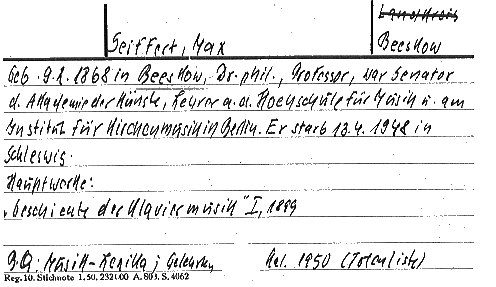 Landkreis
Seiffert, Max
Beeskow
Geb. 9.2.1868 in Beeskow, Dr. phil., Professor, war Senator
d. Akademie der Künste, Lehrer a. d. Hochschule für Musik u. am
Institut für Kirchenmusik in Berlin. Er starb 13.4.1948 in
Schleswig.
Hauptwerke:
"Geschichte der Klaviermusik" I, 1899
Musik-Lexika; Gelehrten
Kal. 1950 (Totenliste)
Reg. 10. Stichnote 1, 50, 2321 00 A. 803. S. 4062